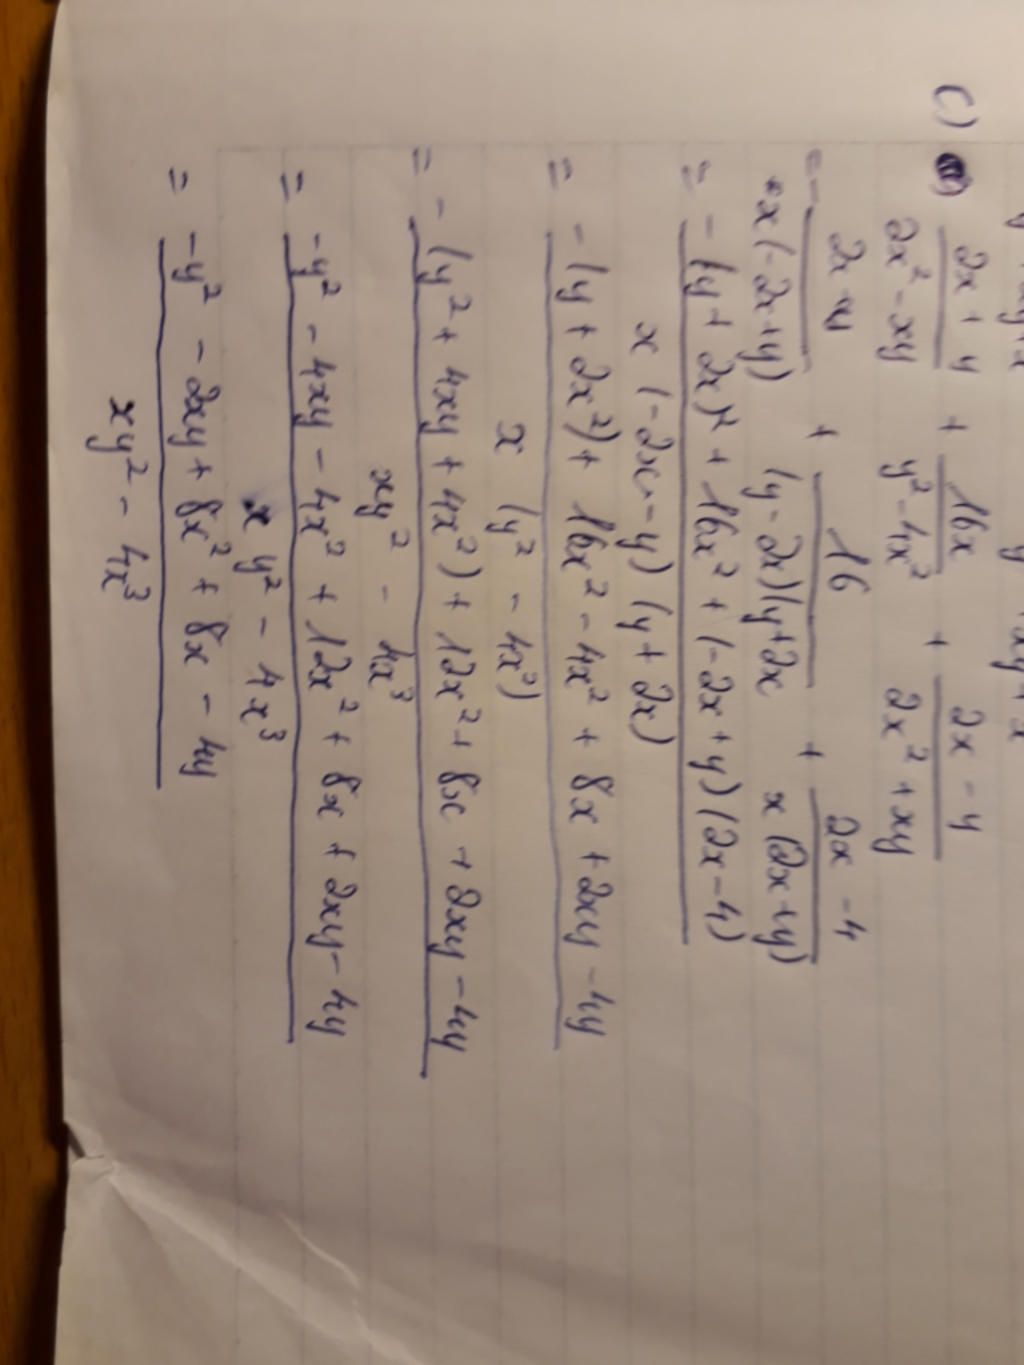 C) (2x + y)/(2x² - xy) + 16x/(y² - 4x²) + (2x - y)/(2x² + xy)
= - (2x + y)/(x(-2x+y)) + 16/((y-2x)(y+2x) + (2x - 4)/(x(2x+y))
= (-(y + 2x)² + 16x² + (-2x + y)(2x-4))/(x (-2x - y) (y + 2x))
= (-(y + 2x²) + 16x² - 4x² + 8x + 2xy - 4y)/(x (y² - 4x²))
= (-(y² + 4xy + 4x²) + 12x² + 8x + 2xy - 4y)/(xy² - 4x³)
= (-y² - 4xy - 4x² + 12x² + 8x + 2xy - 4y)/(xy² - 4x³)
= (-y² - 2xy + 8x² + 8x - 4y)/(xy² - 4x³)